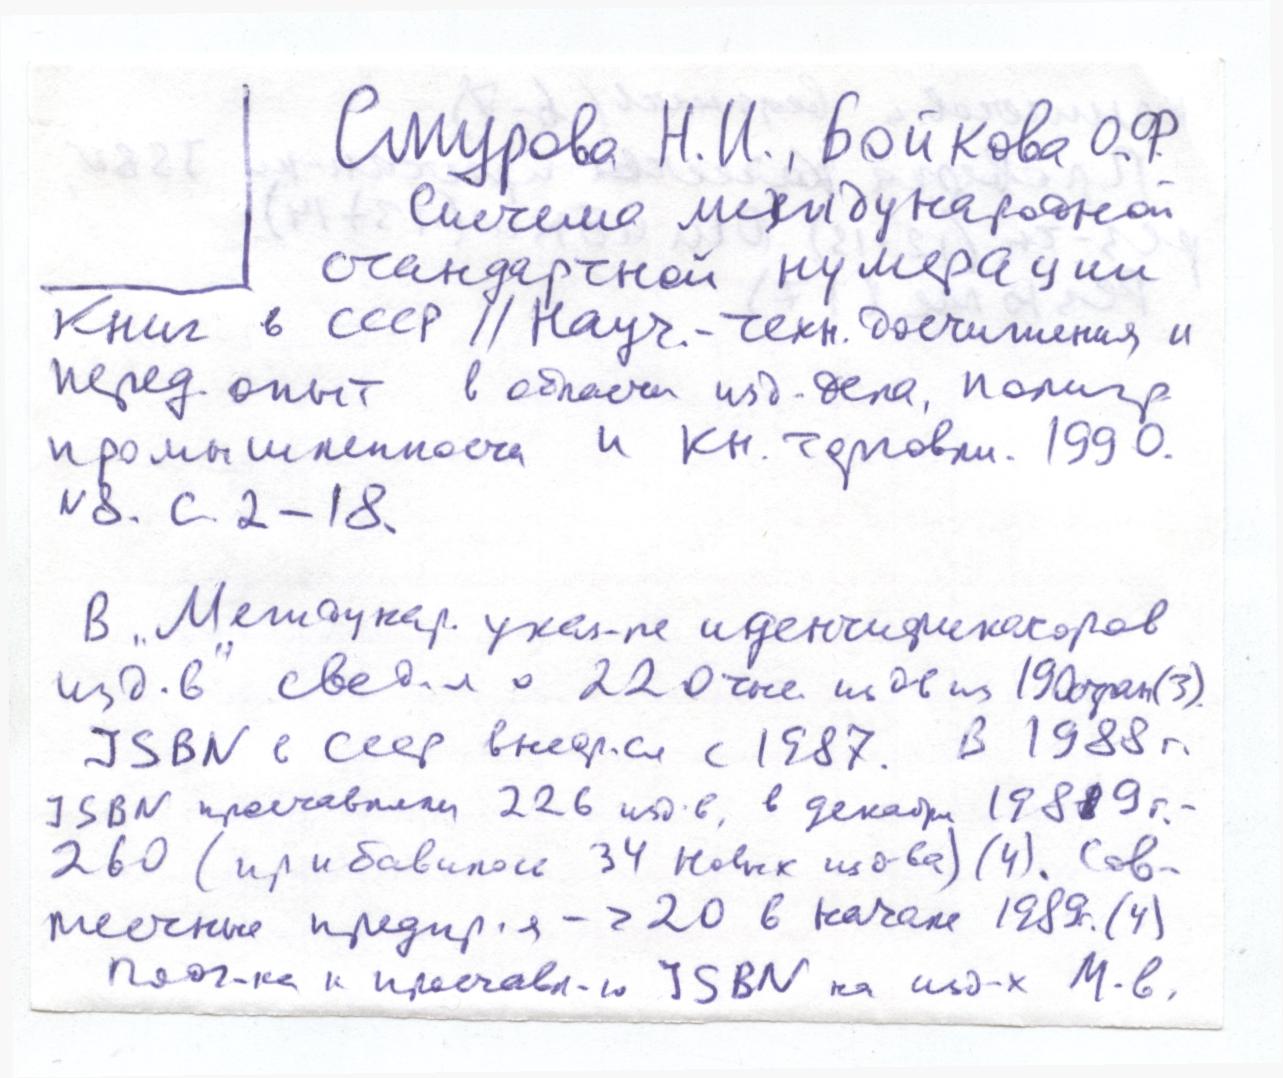 Смурова Н.И., Бойкова О.Ф.
Система международной
стандартной нумерации
книг в СССР // Науч.-техн. достижения и
перед. опыт в области изд. дела, полигр
промышленности и кн. торговли. 1990.
N 8. С. 2–18.
В „Междунар. указ-ле идентификаторов
изд-в" свед-я о 220 тыс. изд-в из 190 стран (3).
ISBN в СССР внедр-ся с 1987. В 1988 г.
ISBN проставляли 226 изд-в, в декабре 1989 г.-
260 (прибавилось 34 новых изд-ва) (4). Сов-
местные предпр-я – >20 в начале 1989г. (4)
Подг-ка к проставл-ю ISBN на изд-х М-в.